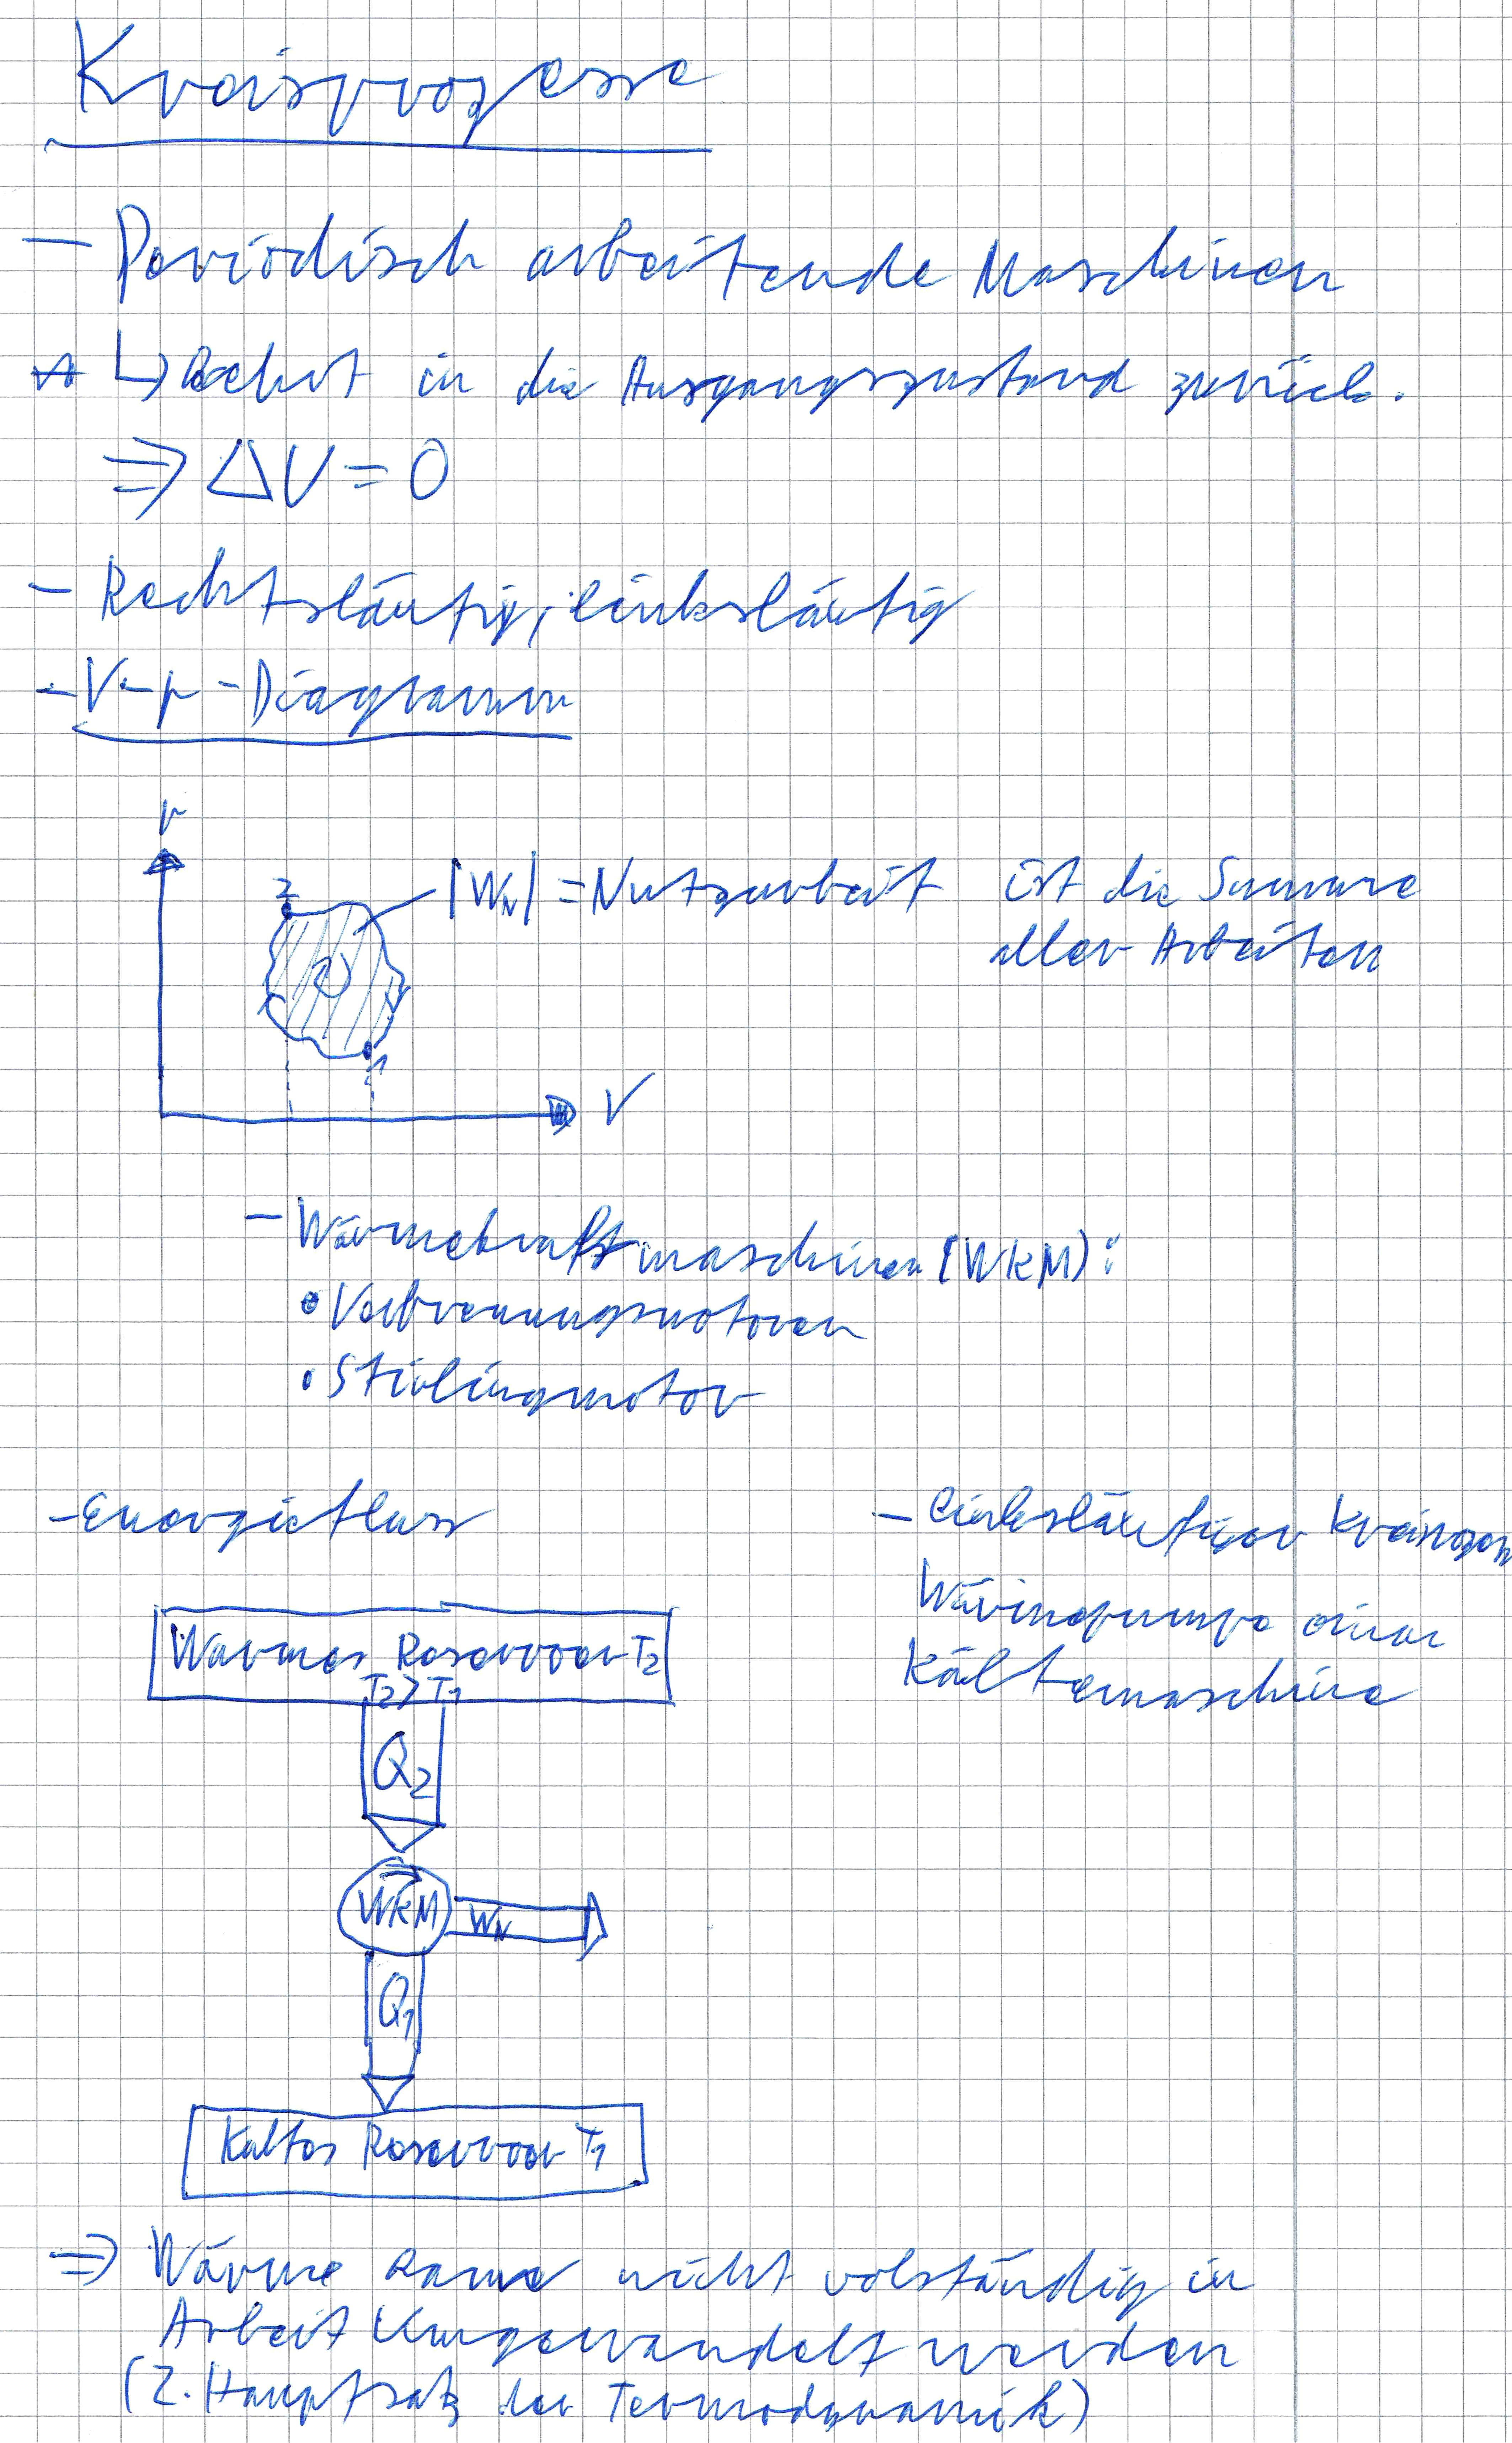 Kreisprozesse
- Periodisch arbeitende Maschinen
↳ kehrt in die Ausgangszustand zurück.
⇒ ΔU = 0
- Rechtsläufig, linksläufig
- V-p-Diagramm
p
2
|W_N| = Nutzarbeit ist die Summe
aller Arbeiten
1
V
- Wärmekraftmaschinen (WKM):
• Verbrennungsmotoren
• Stirlingmotor
- Energiefluss
- linksläufiger
Wärmepumpe
Kältemaschine
Warmes Reservoir T2
T2 > T1
Q2
WKM
W_N
Q1
Kaltes Reservoir T1
⇒ Wärme kann nicht volständig in
Arbeit Umgewandelt werden
(2. Hauptsatz der Termodynamik)